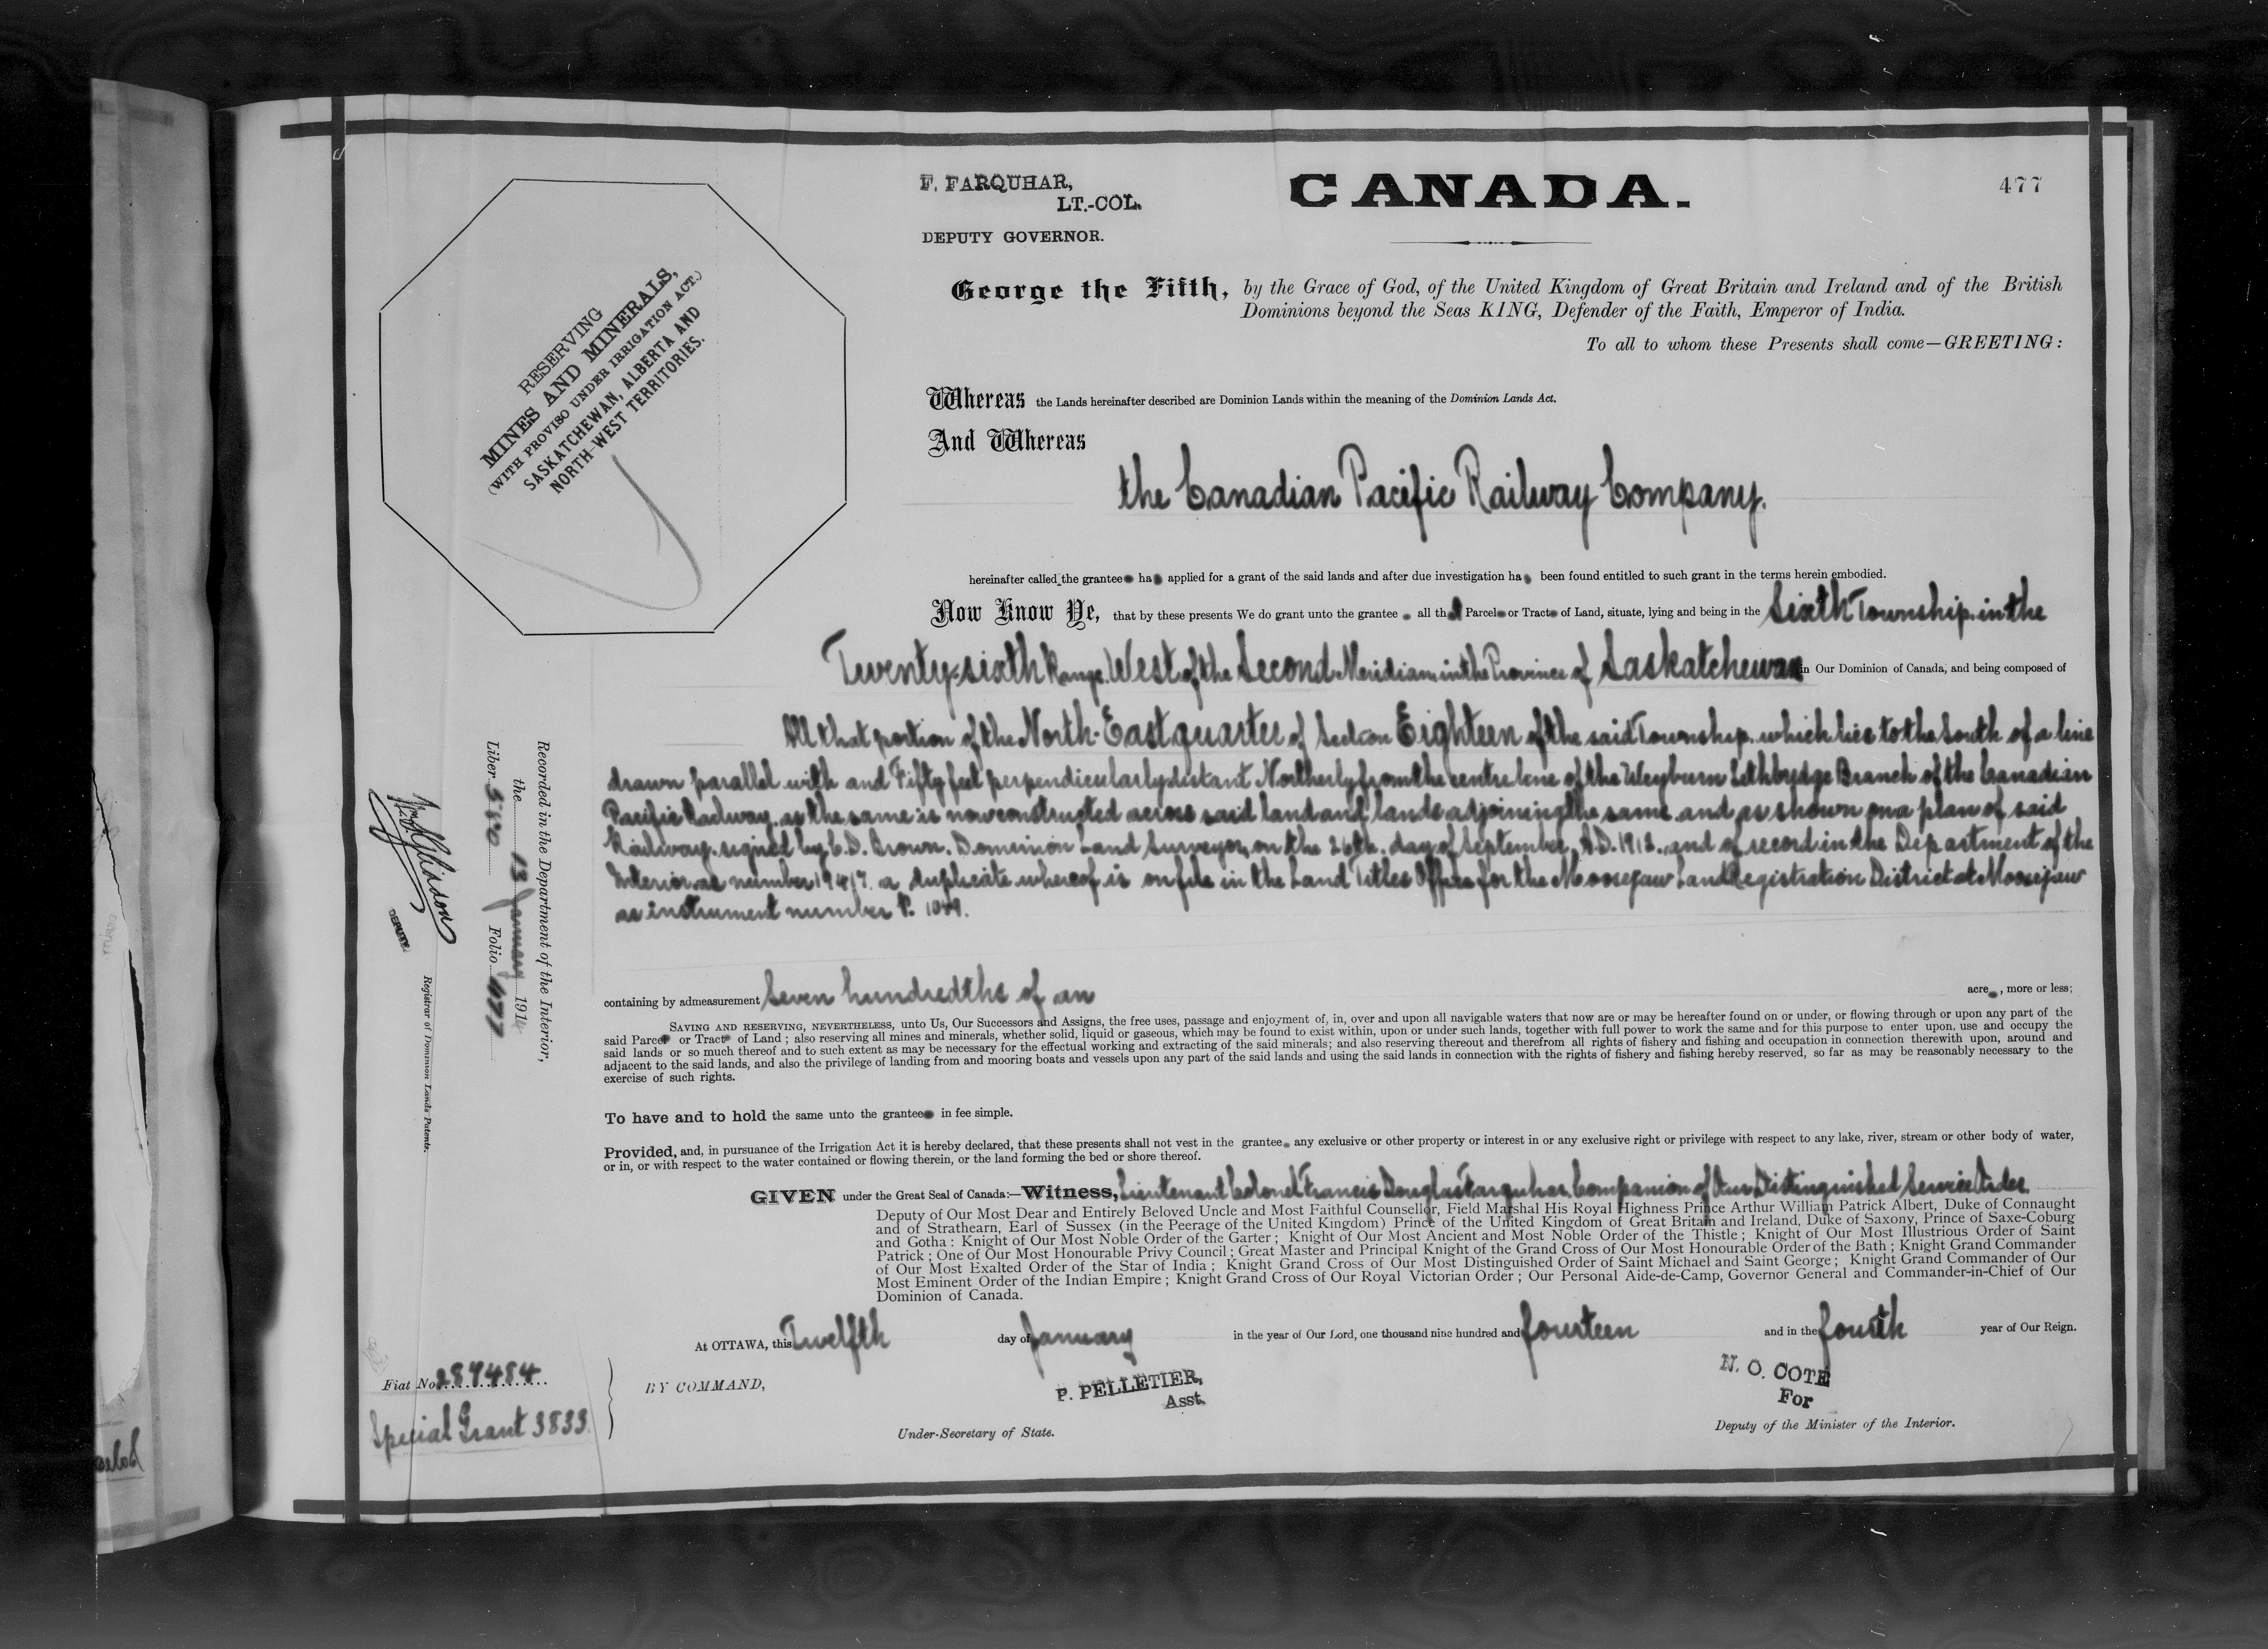 477
F. FARQUHAR,
LT.-COL.
DEPUTY GOVERNOR.
CANADA.
RESERVING
MINES AND MINERALS,
(WITH PROVISO UNDER IRRIGATION ACT.)
SASKATCHEWAN, ALBERTA AND
NORTH-WEST TERRITORIES.
George the Fifth, by the Grace of God, of the United Kingdom of Great Britain and Ireland and of the British
Dominions beyond the Seas KING, Defender of the Faith, Emperor of India.
To all to whom these Presents shall come—GREETING:
Whereas the Lands hereinafter described are Dominion Lands within the meaning of the Dominion Lands Act.
And Whereas
the Canadian Pacific Railway Company.
hereinafter called the grantee ha applied for a grant of the said lands and after due investigation ha been found entitled to such grant in the terms herein embodied.
Now Know Ye, that by these presents We do grant unto the grantee all that Parcel or Tract of Land, situate, lying and being in the Sixth Township in the
Twenty-sixth Range West of the Second Meridian in the Province of Saskatchewan in Our Dominion of Canada, and being composed of
All that portion of the North-East quarter of Section Eighteen of the said Township which lies to the South of a line
drawn parallel with and Fifty feet perpendicularly distant Northerly from the centre line of the Weyburn Lethbridge Branch of the Canadian
Pacific Railway, as the same is now constructed across said land and lands adjoining the same and as shown on a plan of said
Railway signed by C.D. Brown, Dominion Land Surveyor, on the 26th. day of September, A.D. 1912., and of record in the Department of the
Interior as number a duplicate whereof is on file in the Land Titles Office for the Moosejaw Land Registration District at Moosejaw
as instrument number P.
containing by admeasurement Seven hundredths of an acre, more or less;
SAVING AND RESERVING, NEVERTHELESS, unto Us, Our Successors and Assigns, the free uses, passage and enjoyment of, in, over and upon all navigable waters that now are or may be hereafter found on or under, or flowing through or upon any part of the
said Parcel or Tract of Land; also reserving all mines and minerals, whether solid, liquid or gaseous, which may be found to exist within, upon or under such lands, together with full power to work the same and for this purpose to enter upon, use and occupy the
said lands or so much thereof and to such extent as may be necessary for the effectual working and extracting of the said minerals; and also reserving thereout and therefrom all rights of fishery and fishing and occupation in connection therewith upon, around and
adjacent to the said lands, and also the privilege of landing from and mooring boats and vessels upon any part of the said lands and using the said lands in connection with the rights of fishery and fishing hereby reserved, so far as may be reasonably necessary to the
exercise of such rights.
To have and to hold the same unto the grantee in fee simple.
Provided, and, in pursuance of the Irrigation Act it is hereby declared, that these presents shall not vest in the grantee any exclusive or other property or interest in or any exclusive right or privilege with respect to any lake, river, stream or other body of water,
or in, or with respect to the water contained or flowing therein, or the land forming the bed or shore thereof.
GIVEN under the Great Seal of Canada:—Witness, Lieutenant Colonel Francis Douglas Farquhar, Companion of Our Distinguished Service Order,
Deputy of Our Most Dear and Entirely Beloved Uncle and Most Faithful Counsellor, Field Marshal His Royal Highness Prince Arthur William Patrick Albert, Duke of Connaught
and of Strathearn, Earl of Sussex (in the Peerage of the United Kingdom) Prince of the United Kingdom of Great Britain and Ireland, Duke of Saxony, Prince of Saxe-Coburg
and Gotha: Knight of Our Most Noble Order of the Garter; Knight of Our Most Ancient and Most Noble Order of the Thistle; Knight of Our Most Illustrious Order of Saint
Patrick; One of Our Most Honourable Privy Council; Great Master and Principal Knight of the Grand Cross of Our Most Honourable Order of the Bath; Knight Grand Commander
of Our Most Exalted Order of the Star of India; Knight Grand Cross of Our Most Distinguished Order of Saint Michael and Saint George; Knight Grand Commander of Our
Most Eminent Order of the Indian Empire; Knight Grand Cross of Our Royal Victorian Order; Our Personal Aide-de-Camp, Governor General and Commander-in-Chief of Our
Dominion of Canada.
At OTTAWA, this Twelfth day of January in the year of Our Lord, one thousand nine hundred and fourteen and in the fourth year of Our Reign.
BY COMMAND,
P. PELLETIER,
Asst.
Under-Secretary of State.
N. O. COTE
For
Deputy of the Minister of the Interior.
Recorded in the Department of the Interior,
the 13 January 1914
Liber Folio 477
DEPUTY
Registrar of Dominion Lands Patents.
Fiat No. 287484
Special Grant 3833.